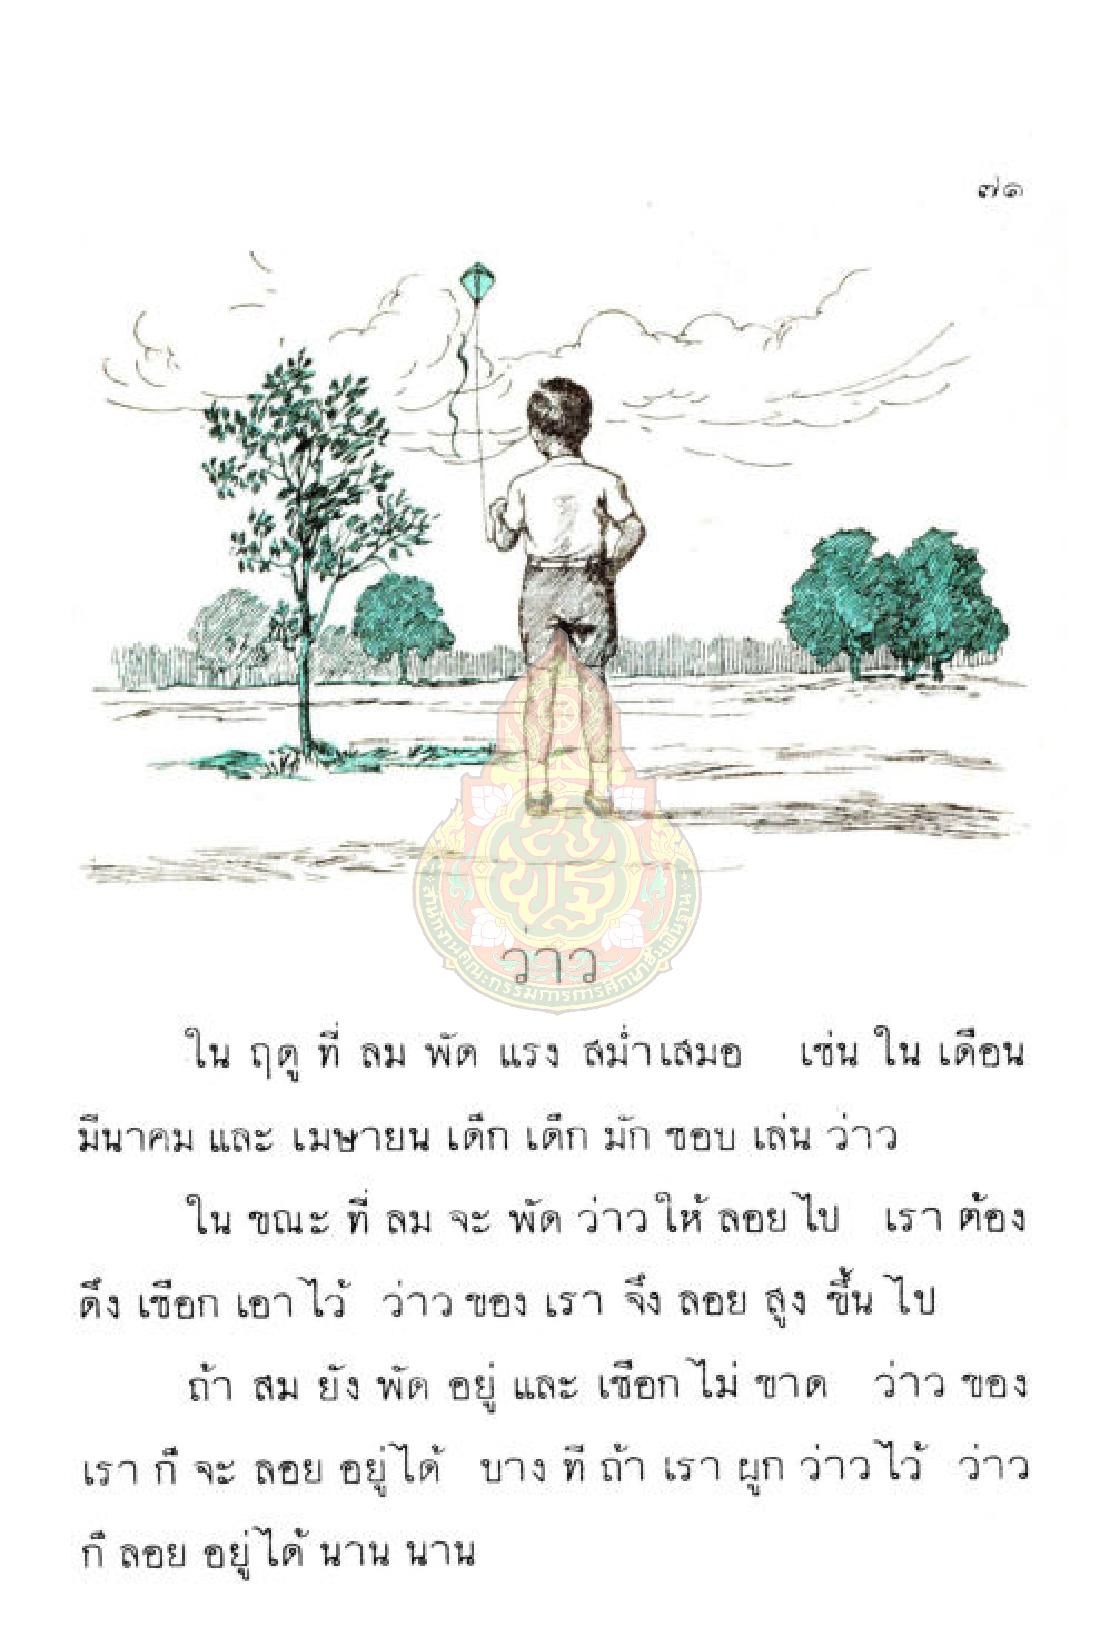 ๗๑
ว่าว
ใน ฤดู ที่ ลม พัด แรง สม่ำเสมอ เช่น ใน เดือน
มีนาคม และ เมษายน เด็ก เด็ก มัก ชอบ เล่น ว่าว
ใน ขณะ ที่ ลม จะ พัด ว่าว ให้ ลอย ไป เรา ต้อง
ดึง เชือก เอา ไว้ ว่าว ของ เรา จึง ลอย สูง ขึ้น ไป
ถ้า ลม ยัง พัด อยู่ และ เชือก ไม่ ขาด ว่าว ของ
เรา ก็ จะ ลอย อยู่ ได้ บาง ที ถ้า เรา ผูก ว่าว ไว้ ว่าว
ก็ ลอย อยู่ ได้ นาน นาน
สำนักงานคณะกรรมการการศึกษาขั้นพื้นฐาน